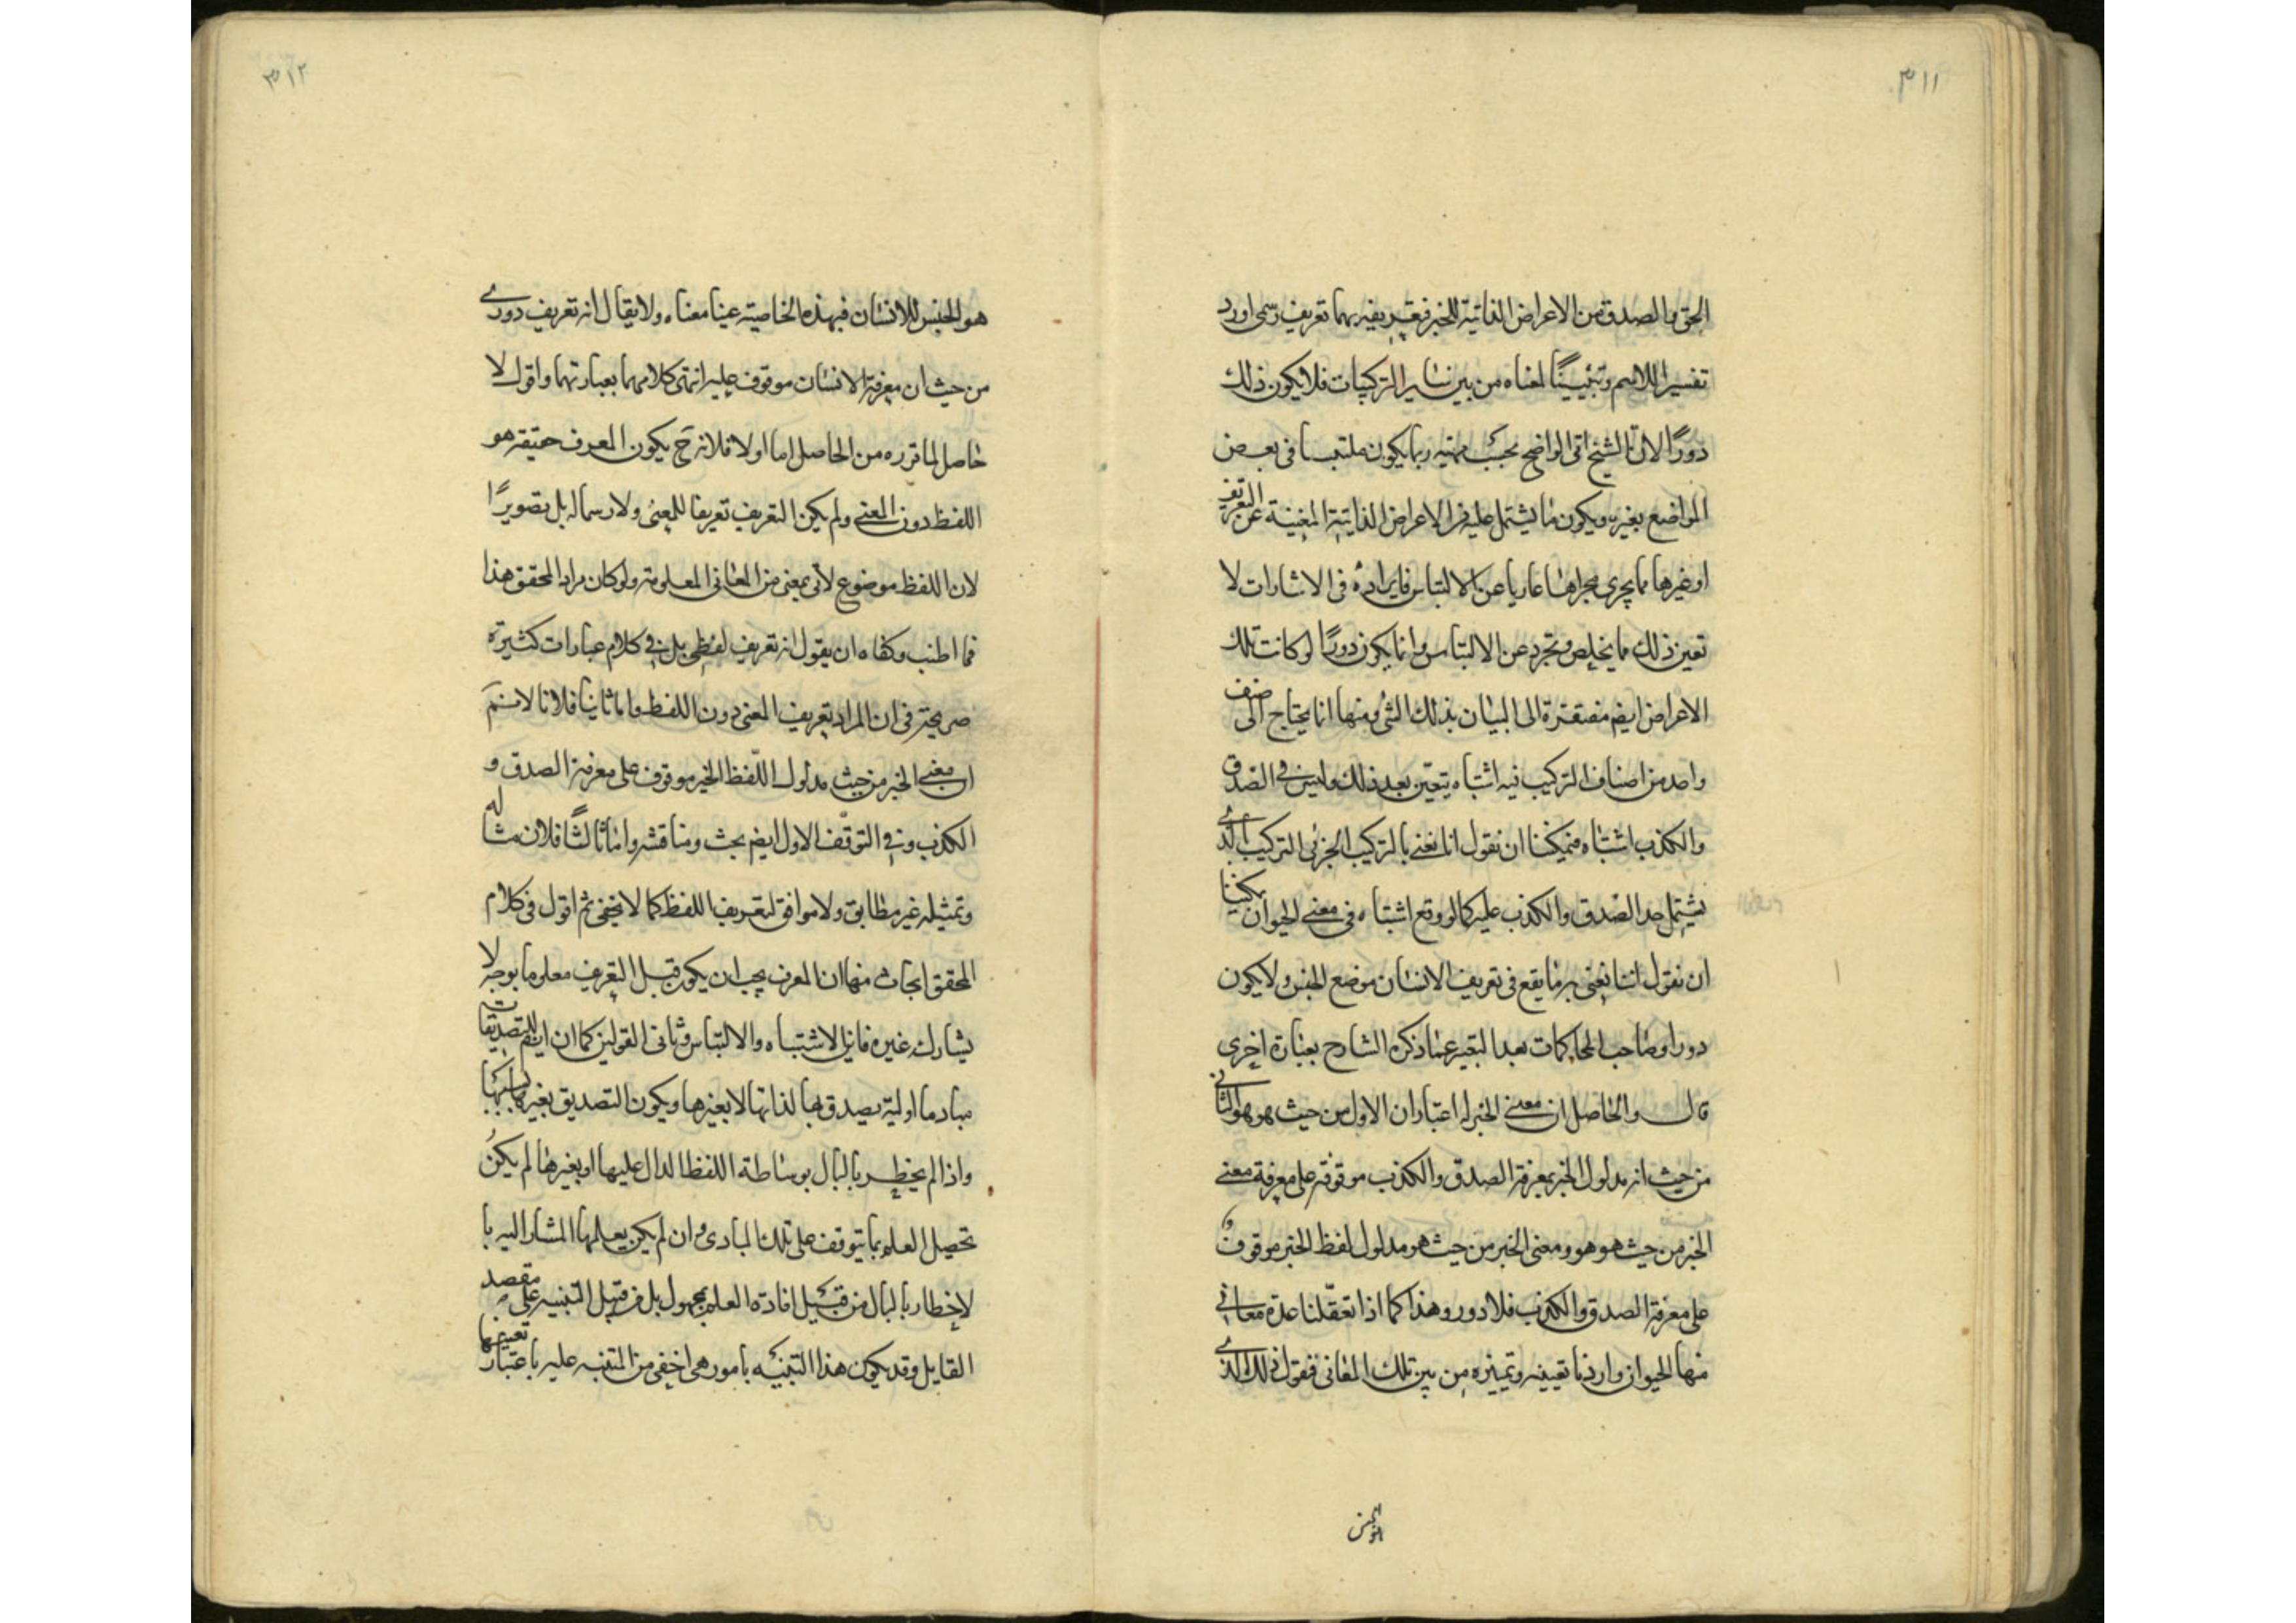 ٣١١
الحق والصدق من الاعراض الذاتية للخبر فتعريفه بهما تعريف رسمى اورد
تفسيرا للاسم وتبيينًا لمعناه من بين سائر التركيبات فلا يكون ذلك
دورًا لان الشيئ الواضح بحسب مهيته ربما يكون ملتبسا فى بعض
المواضع بغيره ويكون ما يشتمل عليه من الاعراض الذاتية المغنية عن التعريف
او غيرها مما يجرى مجراها عاريا عن الالتباس فايراده فى الاشارات لا
تعين ذلك مما يخلص وتجرد عن الالتباس وانما يكون دورًا لو كانت تلك
الاعراض ايضم مفتقرة الى البيان بذلك الشئ ومنها انما يحتاج الى صنف
واحد من اصناف التركيب فيه اشتباه يتعين بعد ذلك وليس فى الصدق
والكذب اشتباه فيمكننا ان نقول انا نعنى بالتركيب الخبرى التركيب الذى
يشتمل حد الصدق والكذب عليه كما لو وقع اشتباه فى معنى الحيوان يمكننا
ان نقول اننا نعنى به ما يقع فى تعريف الانسان موضع الجنس ولا يكون
دورا وصاحب المحاكمات بعد التعبير عما ذكره الشارح بعبارة اخرى
قال والحاصل ان معنى الخبر له اعتباران الاول من حيث هو هو والثانى
من حيث انه مدلول الخبر بمعرفة الصدق والكذب موقوفة على معرفة معنى
الخبر من حيث هو هو ومعنى الخبر من حيث هو مدلول لفظ الخبر موقوف
على معرفة الصدق والكذب فلا دور وهذا كما اذا تعقلنا عدة معانى
منها الحيوان واردنا تعيينه وتميزه من بين تلك المعانى فنقول ذلك الذى
٣١٢
هو الجنس للانسان فبهذه الخاصية عينا معناه ولا يقال انه تعريف دورى
من حيث ان معرفة الانسان موقوف عليه انتهى كلامهما بعبارتهما واقول لا
حاصل لما قرره من الحاصل اما اولا فلانه ح يكون المعرف حقيقة هو
اللفظ دون المعنى ولم يكن التعريف تعريفا للمعنى ولا رسما له بل تصويرًا
لان اللفظ موضوع لأى معنى من المعانى المعلومة ولو كان مراد المحقق هذا
فما اطنب وكفاه ان يقول انه تعريف لفظى بل فى كلام عبارات كثيرة
صريحة فى ان المراد تعريف المعنى دون اللفظ واما ثانيا فلانا لا نسلم
ان معنى الخبر من حيث مدلول اللفظ الخبر موقوف على معرفة الصدق و
الكذب وفى التوقف الاول ايضم بحث ومناقشه واما ثالثًا فلان مثاله
وتمثيله غير مطابق ولا موافق لتعريف اللفظ كما لا يخفى ثم اقول فى كلام
المحقق ابحاث منها ان المعرف يجب ان يكون قبل التعريف معلوما بوجه لا
يشارك غيره فاين الاشتباه والالتباس وثانى القولين كما ان للتصديقات
مبادما اولية يصدق بها لذاتها لا بغيرها ويكون التصديق بغيرها بسببها
واذا لم يخطر بالبال بوساطة اللفظ الدال عليها او بغيرها لم يكن
تحصيل العلم بما يتوقف على تلك المبادى وان لم يكن يعلمها المشار اليه با
لاخطار بالبال من قبيل افادة العلم بمجهول بل من قبيل التنبيه على مقصد
القايل وقد يكون هذا التنبيه بامور هى اخفى من المتنبه عليه باعتبار تعيينها